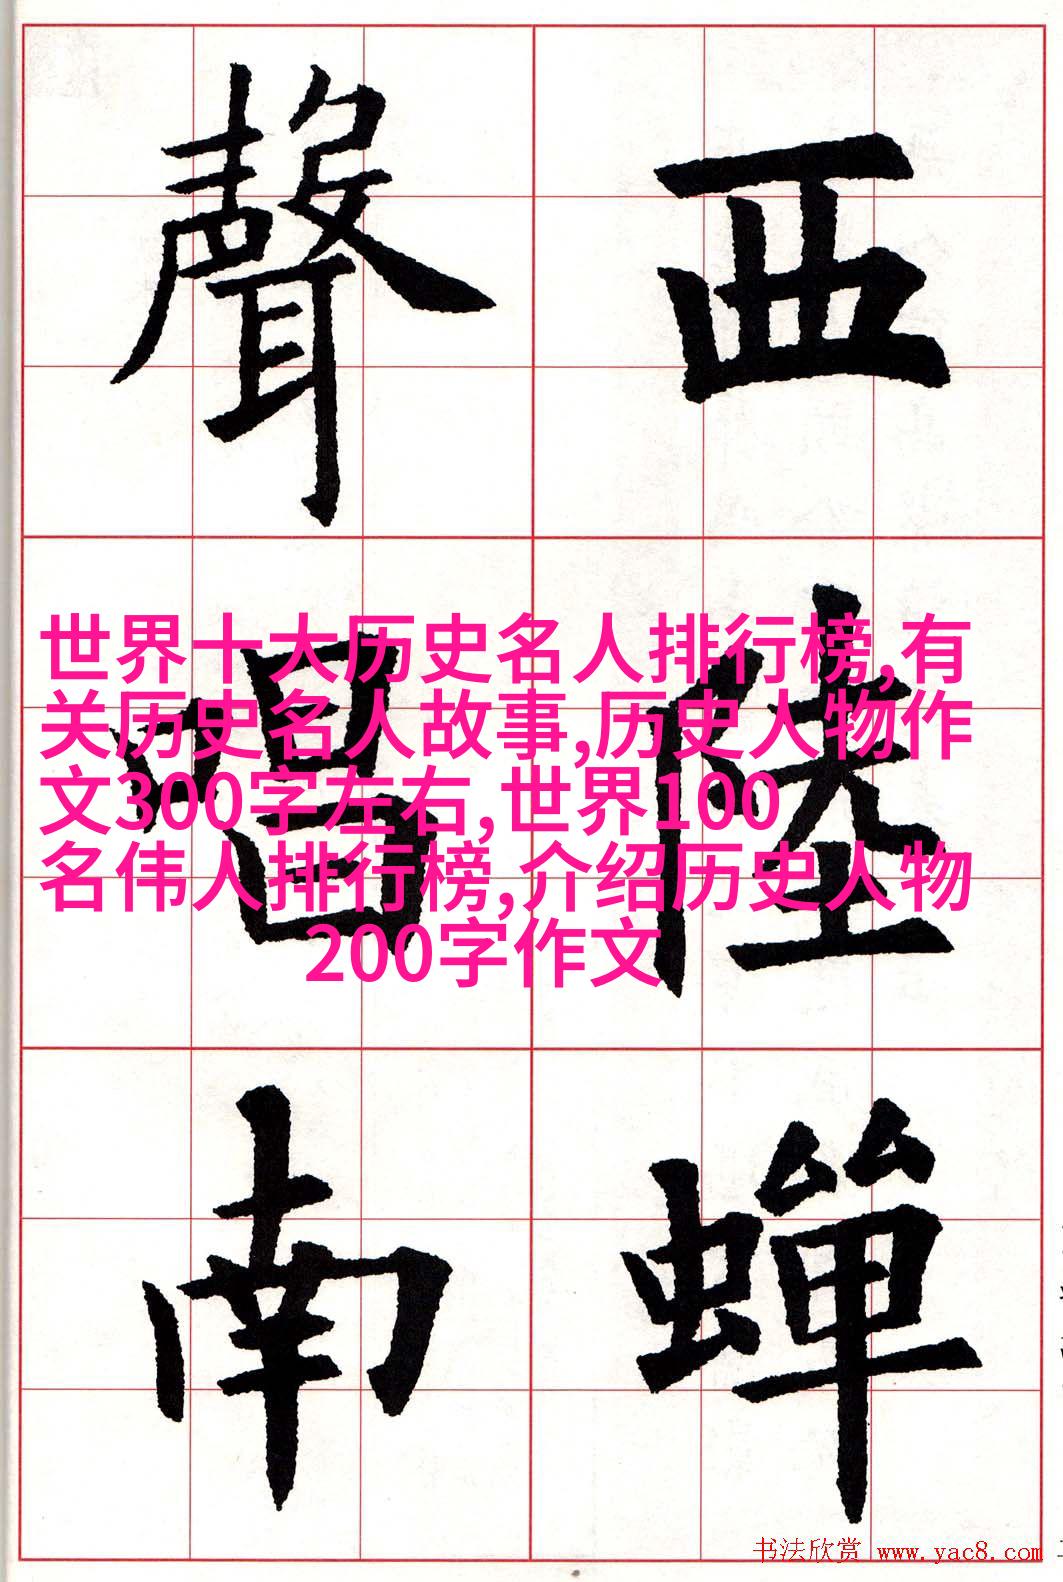 西陸蟬
聲唱南
世界十大历史名人排行榜,有
关历史名人故事,历史人物作
文300字左右,世界100
名伟人排行榜,介绍历史人物
200字作文
书法欣赏 www.yac8.com